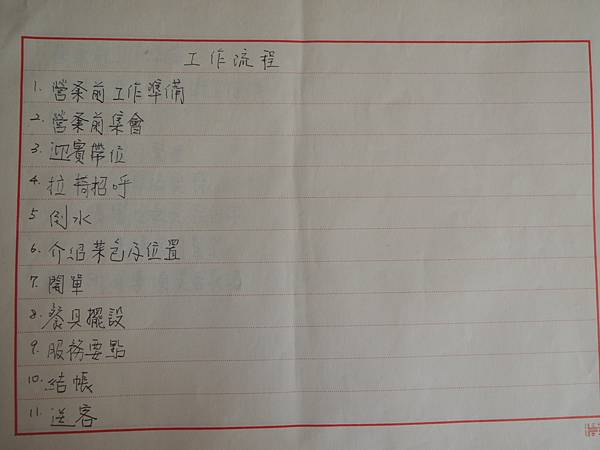 工作流程
1. 營業前工作準備
2. 營業前集會
3. 迎賓帶位
4. 拉椅招呼
5. 倒水
6. 介紹菜色及位置
7. 開單
8. 餐具擺設
9. 服務要點
10. 結帳
11. 送客